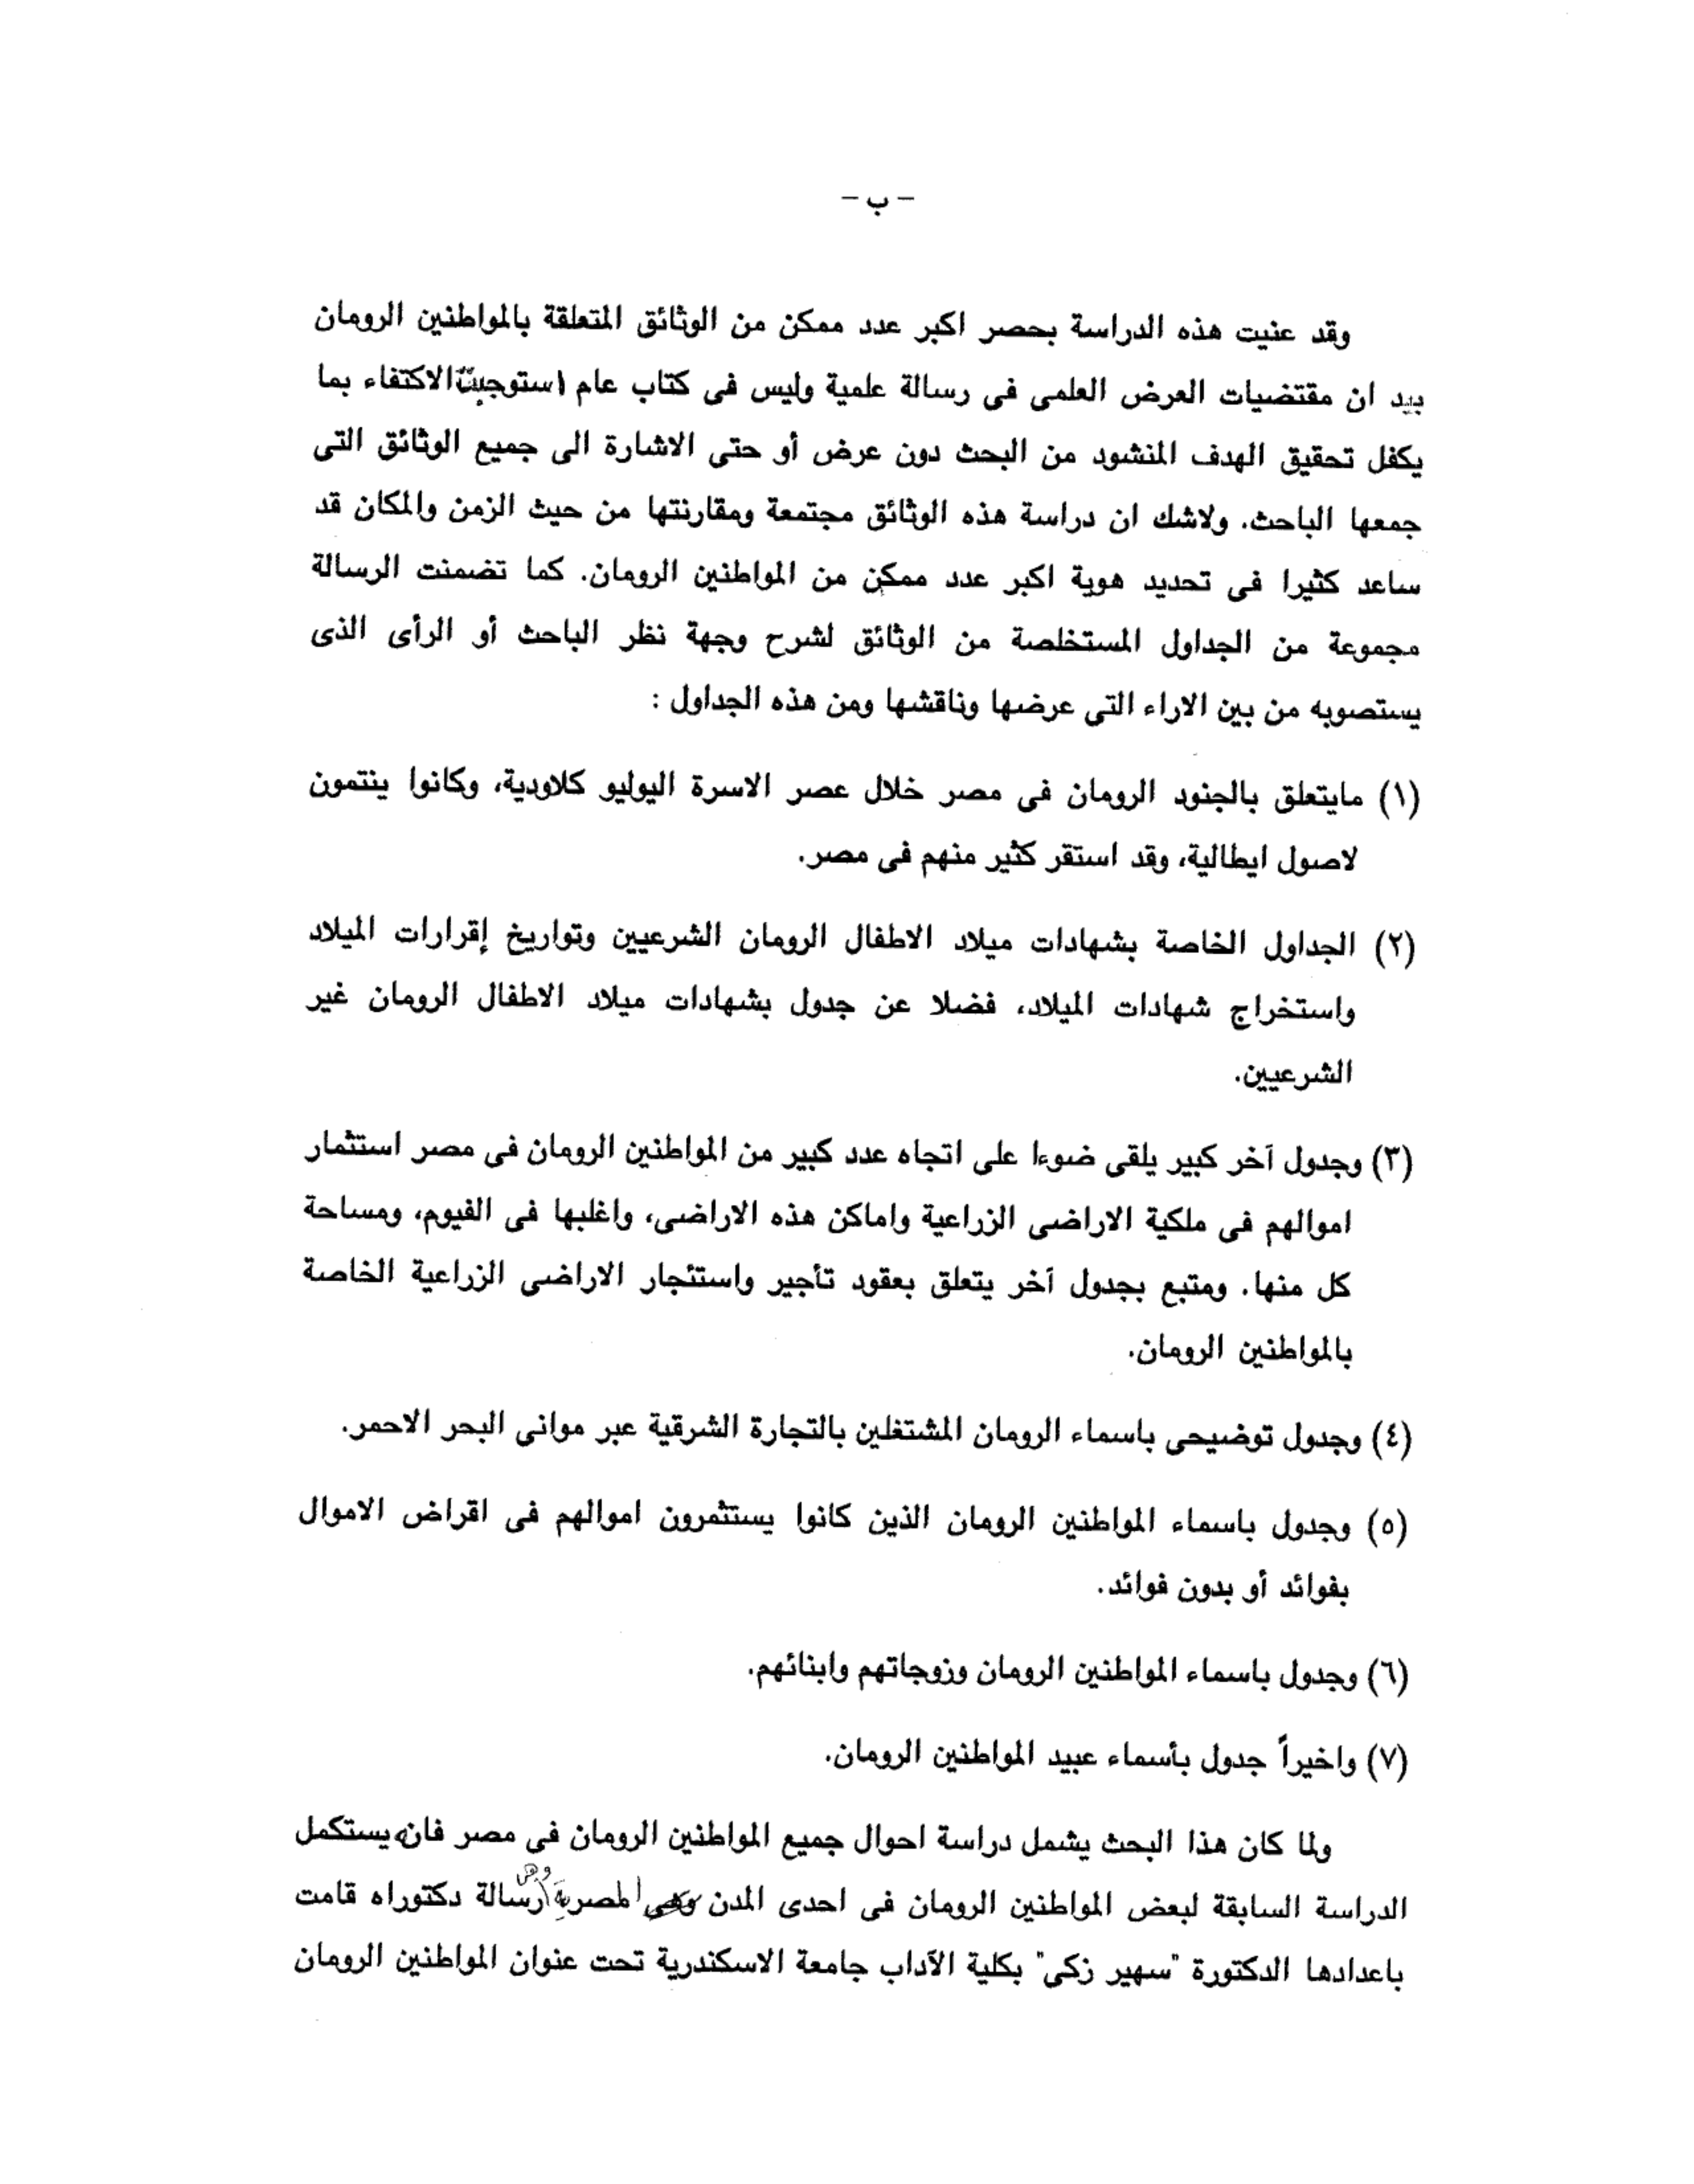 - ب -
وقد عنيت هذه الدراسة بحصر اكبر عدد ممكن من الوثائق المتعلقة بالمواطنين الرومان
بيد ان مقتضيات العرض العلمى فى رسالة علمية وليس فى كتاب عام استوجبت الاكتفاء بما
يكفل تحقيق الهدف المنشود من البحث دون عرض أو حتى الاشارة الى جميع الوثائق التى
جمعها الباحث. ولاشك ان دراسة هذه الوثائق مجتمعة ومقارنتها من حيث الزمن والمكان قد
ساعد كثيرا فى تحديد هوية اكبر عدد ممكن من المواطنين الرومان. كما تضمنت الرسالة
مجموعة من الجداول المستخلصة من الوثائق لشرح وجهة نظر الباحث أو الرأى الذى
يستصوبه من بين الاراء التى عرضها وناقشها ومن هذه الجداول :
(١) مايتعلق بالجنود الرومان فى مصر خلال عصر الاسرة اليوليو كلاودية، وكانوا ينتمون
لاصول ايطالية، وقد استقر كثير منهم فى مصر.
(٢) الجداول الخاصة بشهادات ميلاد الاطفال الرومان الشرعيين وتواريخ إقرارات الميلاد
واستخراج شهادات الميلاد، فضلا عن جدول بشهادات ميلاد الاطفال الرومان غير
الشرعيين.
(٣) وجدول آخر كبير يلقى ضوءا على اتجاه عدد كبير من المواطنين الرومان فى مصر استثمار
اموالهم فى ملكية الاراضى الزراعية واماكن هذه الاراضى، واغلبها فى الفيوم، ومساحة
كل منها. ومتبع بجدول آخر يتعلق بعقود تأجير واستئجار الاراضى الزراعية الخاصة
بالمواطنين الرومان.
(٤) وجدول توضيحى باسماء الرومان المشتغلين بالتجارة الشرقية عبر موانى البحر الاحمر.
(٥) وجدول باسماء المواطنين الرومان الذين كانوا يستثمرون اموالهم فى اقراض الاموال
بفوائد أو بدون فوائد.
(٦) وجدول باسماء المواطنين الرومان وزوجاتهم وابنائهم.
(٧) واخيراً جدول بأسماء عبيد المواطنين الرومان.
ولما كان هذا البحث يشمل دراسة احوال جميع المواطنين الرومان فى مصر فانه يستكمل
الدراسة السابقة لبعض المواطنين الرومان فى احدى المدن المصرية وهى رسالة دكتوراه قامت
باعدادها الدكتورة "سهير زكى" بكلية الآداب جامعة الاسكندرية تحت عنوان المواطنين الرومان